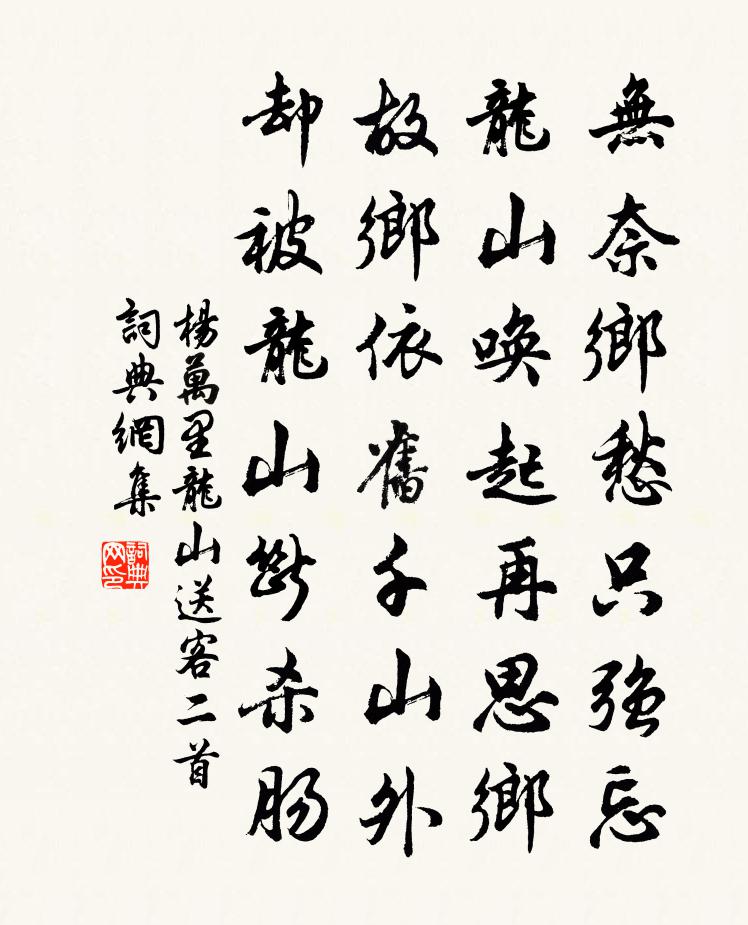 無奈鄉愁只強忘
龍山喚起再思鄉
故鄉依舊千山外
却被龍山斷杀肠
楊萬里龍山送客二首
詞典網集
詞典网印